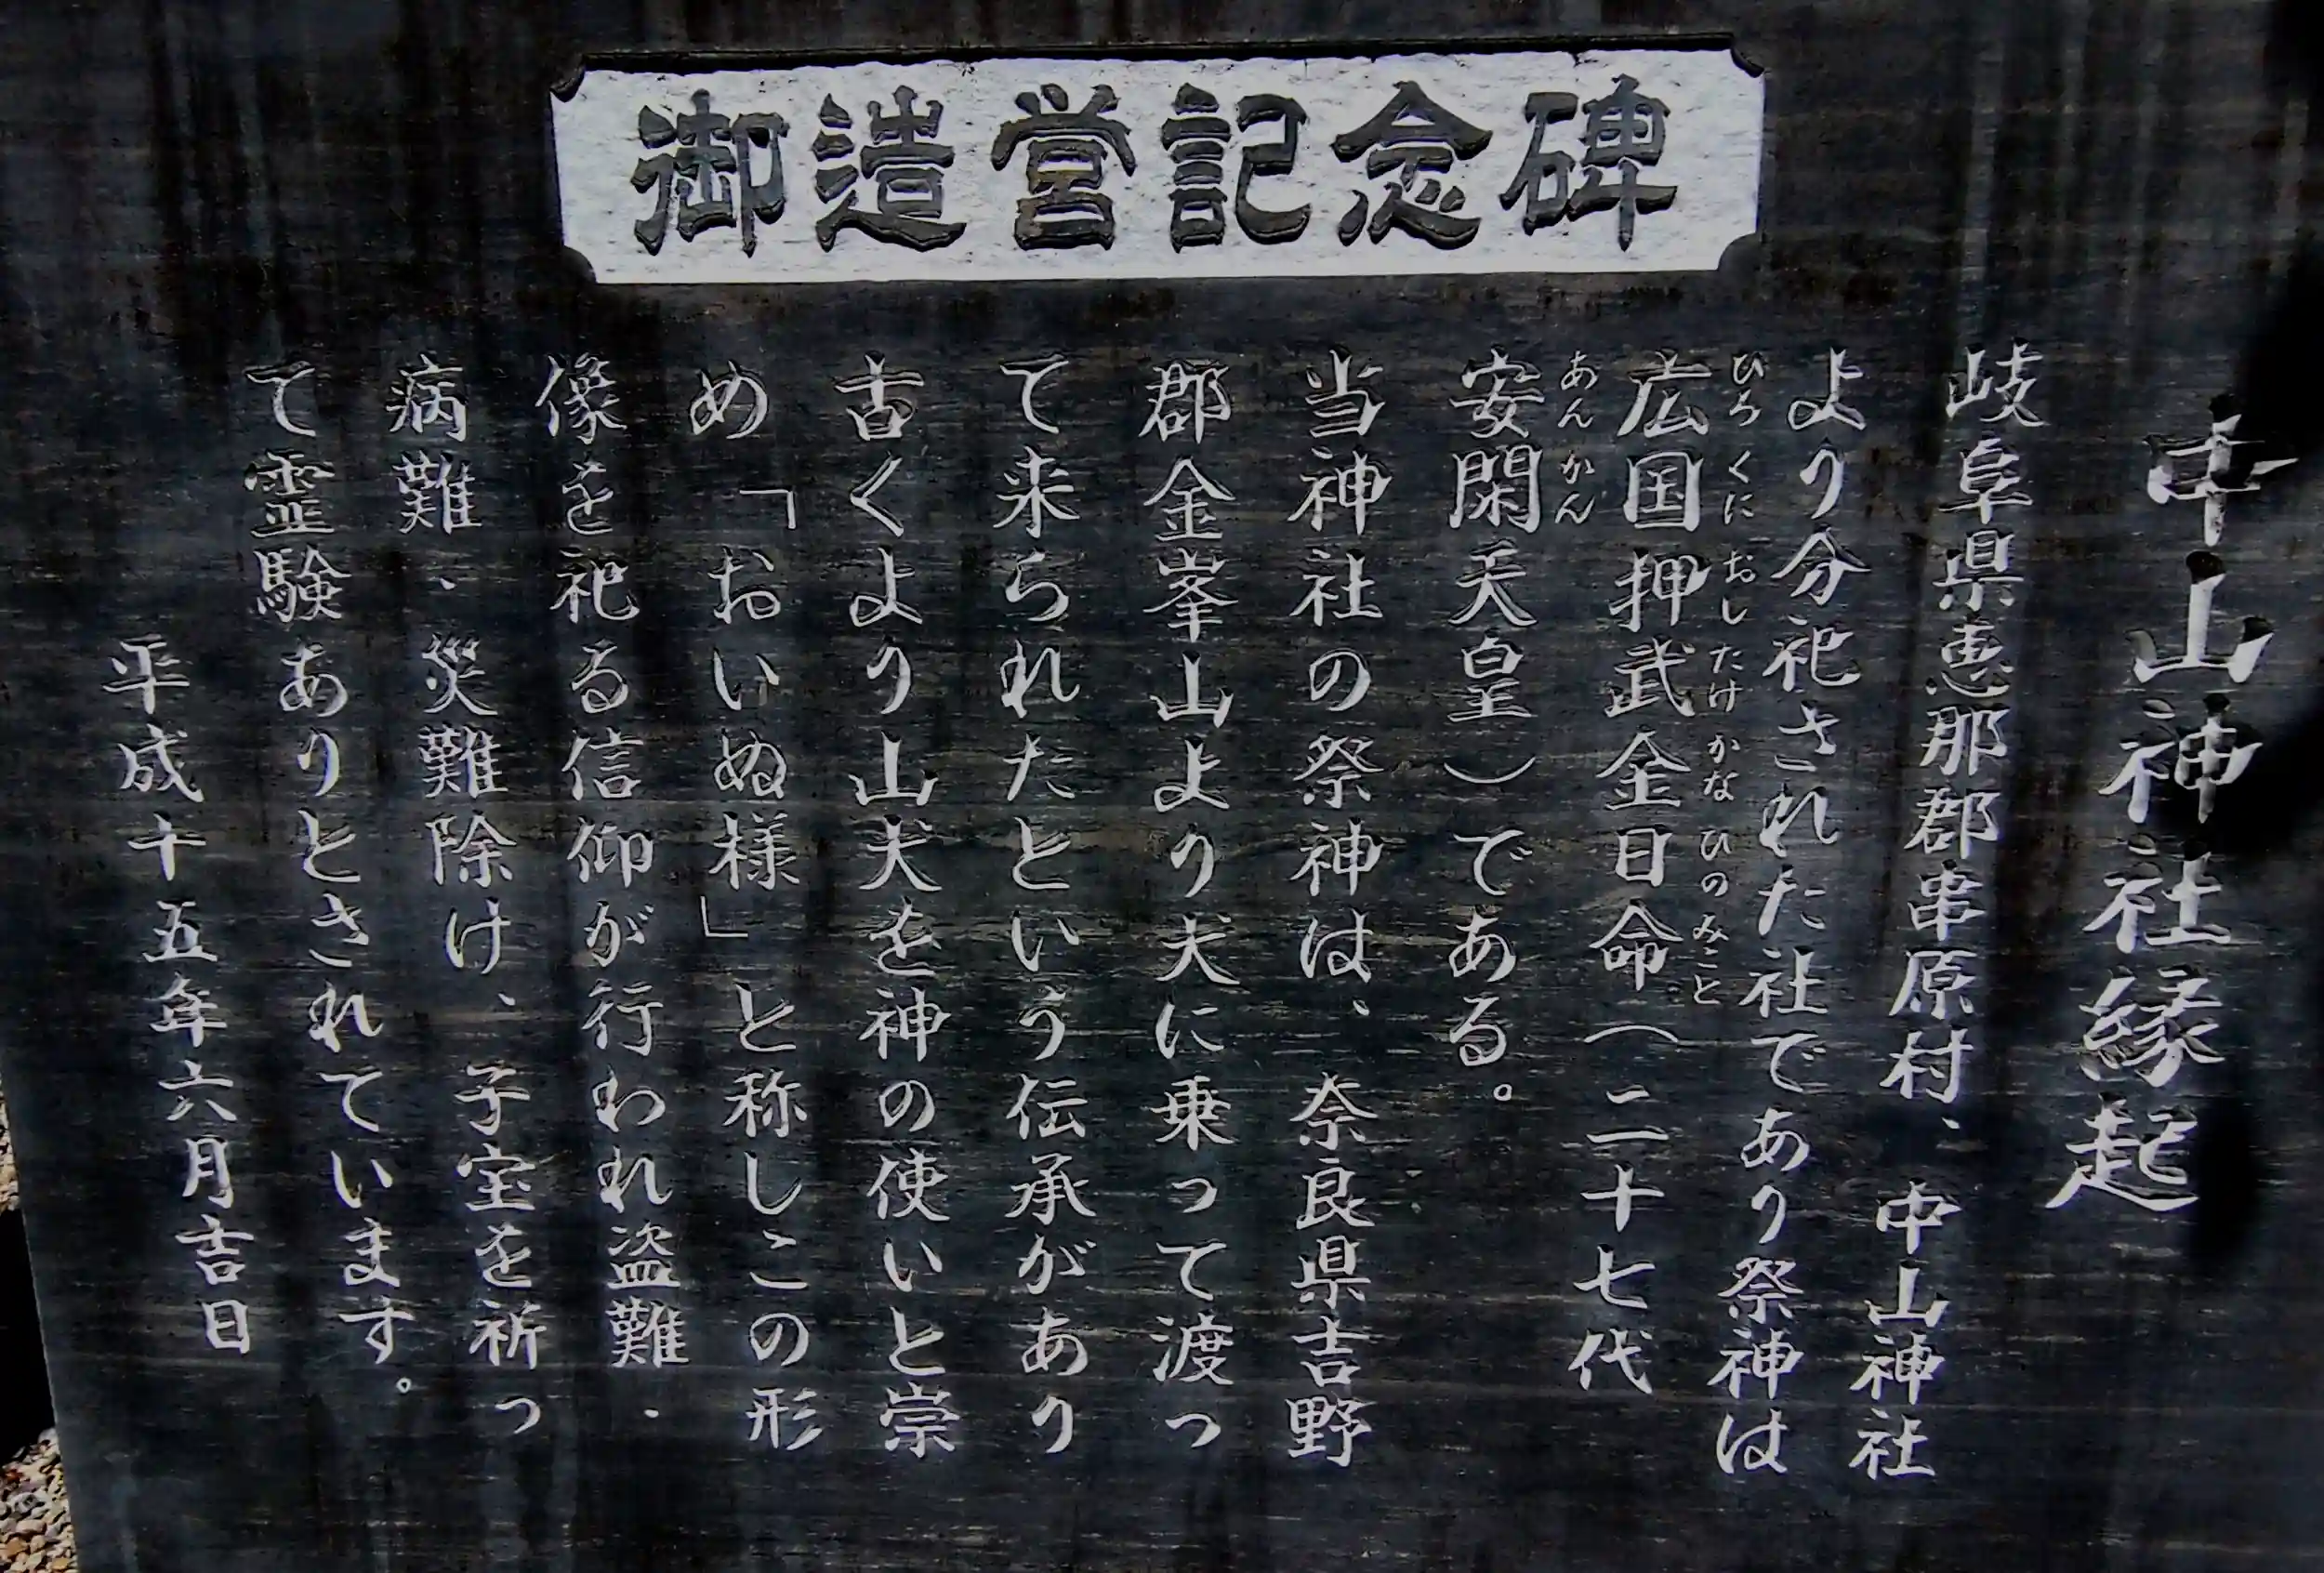 御造営記念碑
中山神社縁起
岐阜県恵那郡串原村、中山神社
より分祀された社であり祭神は
ひろくにおしたけかなひのみこと
広国押武金日命(二十七代
あんかん
安閑天皇)である。
当神社の祭神は、奈良県吉野
郡金峯山より犬に乗って渡っ
て来られたという伝承があり
古くより山犬を神の使いと崇
め「おいぬ様」と称しこの形
像を祀る信仰が行われ盗難・
病難・災難除け、子宝を祈っ
て霊験ありとされています。
平成十五年六月吉日